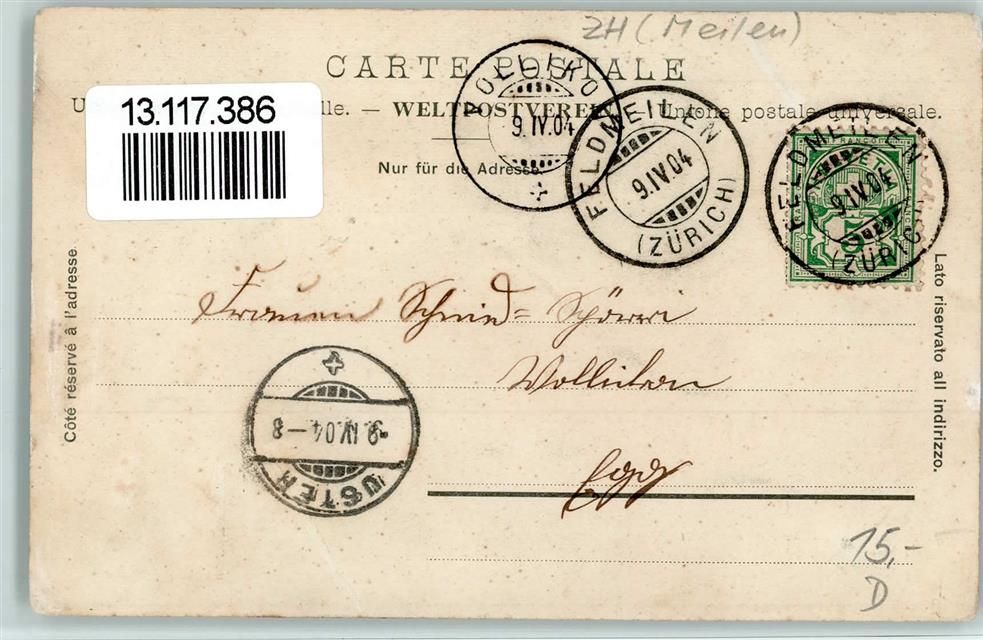 ZH (Meilen)
CARTE POSTALE
13.117.386
lle. — WELTPOSTVEREIN Unione postale universale.
Nur für die Adresse.
Côté réservé à l'adresse.
Lato riservato all indirizzo.
9.IV.04
FELDMEILEN
9.IV.04
(ZÜRICH)
FELDMEILEN
9.IV.04
(ZÜRICH)
Frauen Schmid=Schörri
Wollikon
Egg
USTER
9.IV.04-8
15,-
D